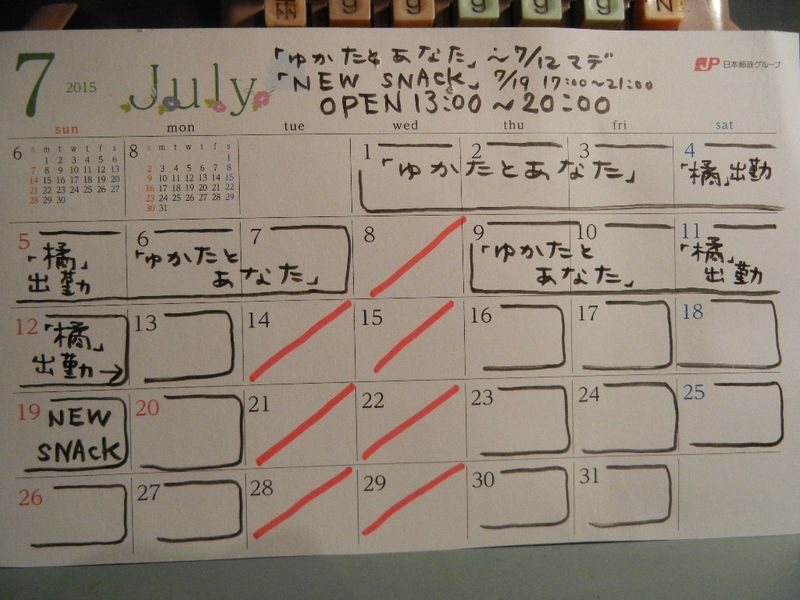 7 2015 July
「ゆかたとあなた」〜7/12マデ
「NEW SNACK」7/19 17:00〜21:00
OPEN 13:00〜20:00
JP 日本郵政グループ
sun mon tue wed thu fri sat
6
s m t w t f s
1 2 3 4 5 6
7 8 9 10 11 12 13
14 15 16 17 18 19 20
21 22 23 24 25 26 27
28 29 30
8
s m t w t f s
1
2 3 4 5 6 7 8
9 10 11 12 13 14 15
16 17 18 19 20 21 22
23 24 25 26 27 28 29
30 31
1 2 3 4
「ゆかたとあなた」
「橘」出勤
5 6 7 8 9 10 11
「橘」
出勤
「ゆかたと
あなた」
「ゆかたと
あなた」
「橘」
出勤
12 13 14 15 16 17 18
「橘」
出勤→
19 20 21 22 23 24 25
NEW
SNACK
26 27 28 29 30 31